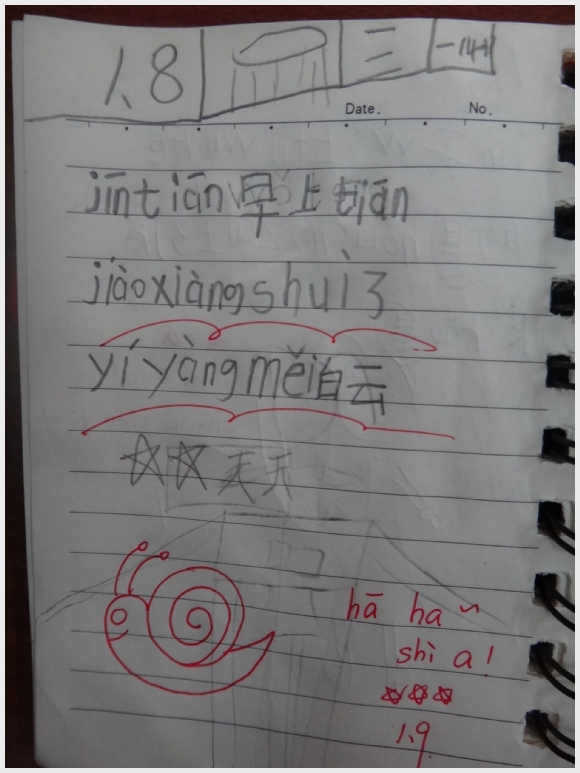 1.8 三
Date. No.
jīntiān早上tiān
jiàoxiàngshuìɜ
yíyàngměi白云
☆☆天天
hā ha ~
shì a!
☆☆☆
1.9